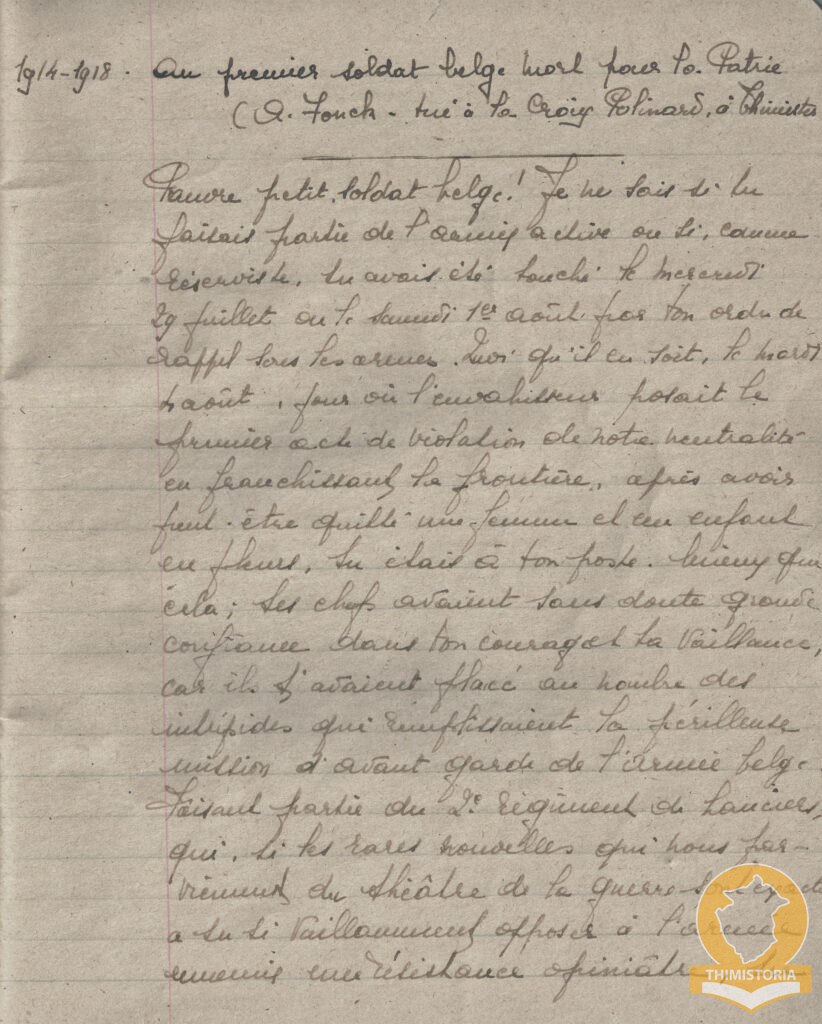 1914-1918. Au premier soldat belge mort pour la Patrie
(A. Fonck - tué à la Croix Polinard, à Thimister
Pauvre petit soldat belge! Je ne sais si tu
faisais partie de l'armée active ou si, comme
réserviste, tu avais été touché le mercredi
29 juillet ou le samedi 1er août par ton ordre de
rappel sous les armes. Quoi qu'il en soit, le mardi
4 août, jour où l'envahisseur posait le
premier acte de violation de notre neutralité
en franchissant la frontière, après avoir
peut-être quitté une femme et un enfant
en pleurs, tu étais à ton poste. Mieux que
cela; tes chefs avaient sans doute grande
confiance dans ton courage et ta vaillance,
car ils t'avaient placé au nombre des
intrépides qui remplissaient la périlleuse
mission d'avant garde de l'armée belge.
Faisant partie du 2e régiment de Lanciers,
qui, si les rares nouvelles qui nous par-
viennent du théâtre de la guerre sont exactes
a su si vaillamment opposer à l'armée
ennemie une résistance opiniâtre,
THIMISTORIA